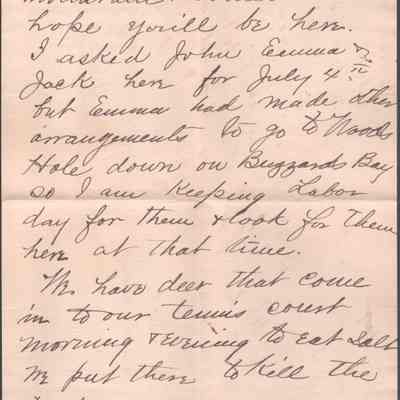 hope you'll be here.
I asked John Emma &
Jack here for July 4th
but Emma had made other
arrangements to go to Woods
Hole down on Buzzards Bay
so I am keeping Labor
day for them & look for them
here at that time.
We have deer that come
in to our tennis court
morning & evening to eat salt
we put there to kill the